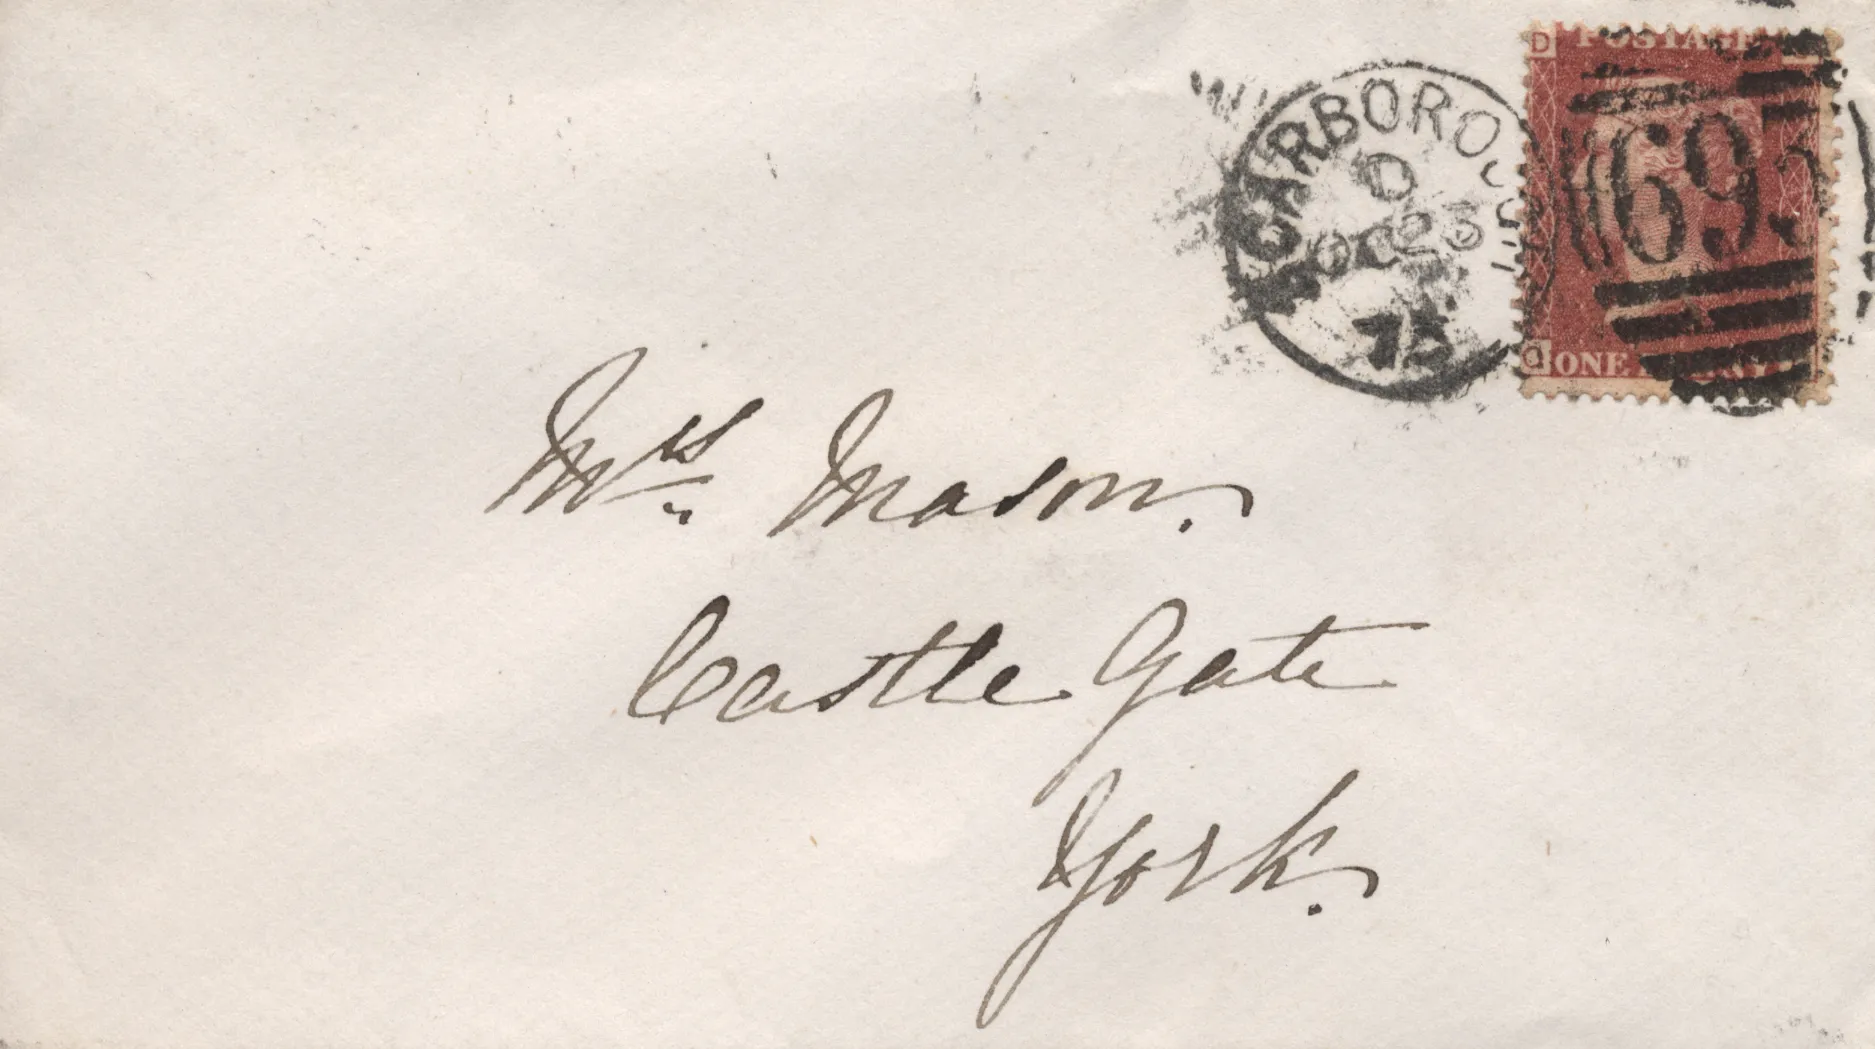 SCARBOROUGH
D
OC 23
75
D
POSTAGE
693
ONE PENNY
Mrs. Mason.
Castle Gate
York.